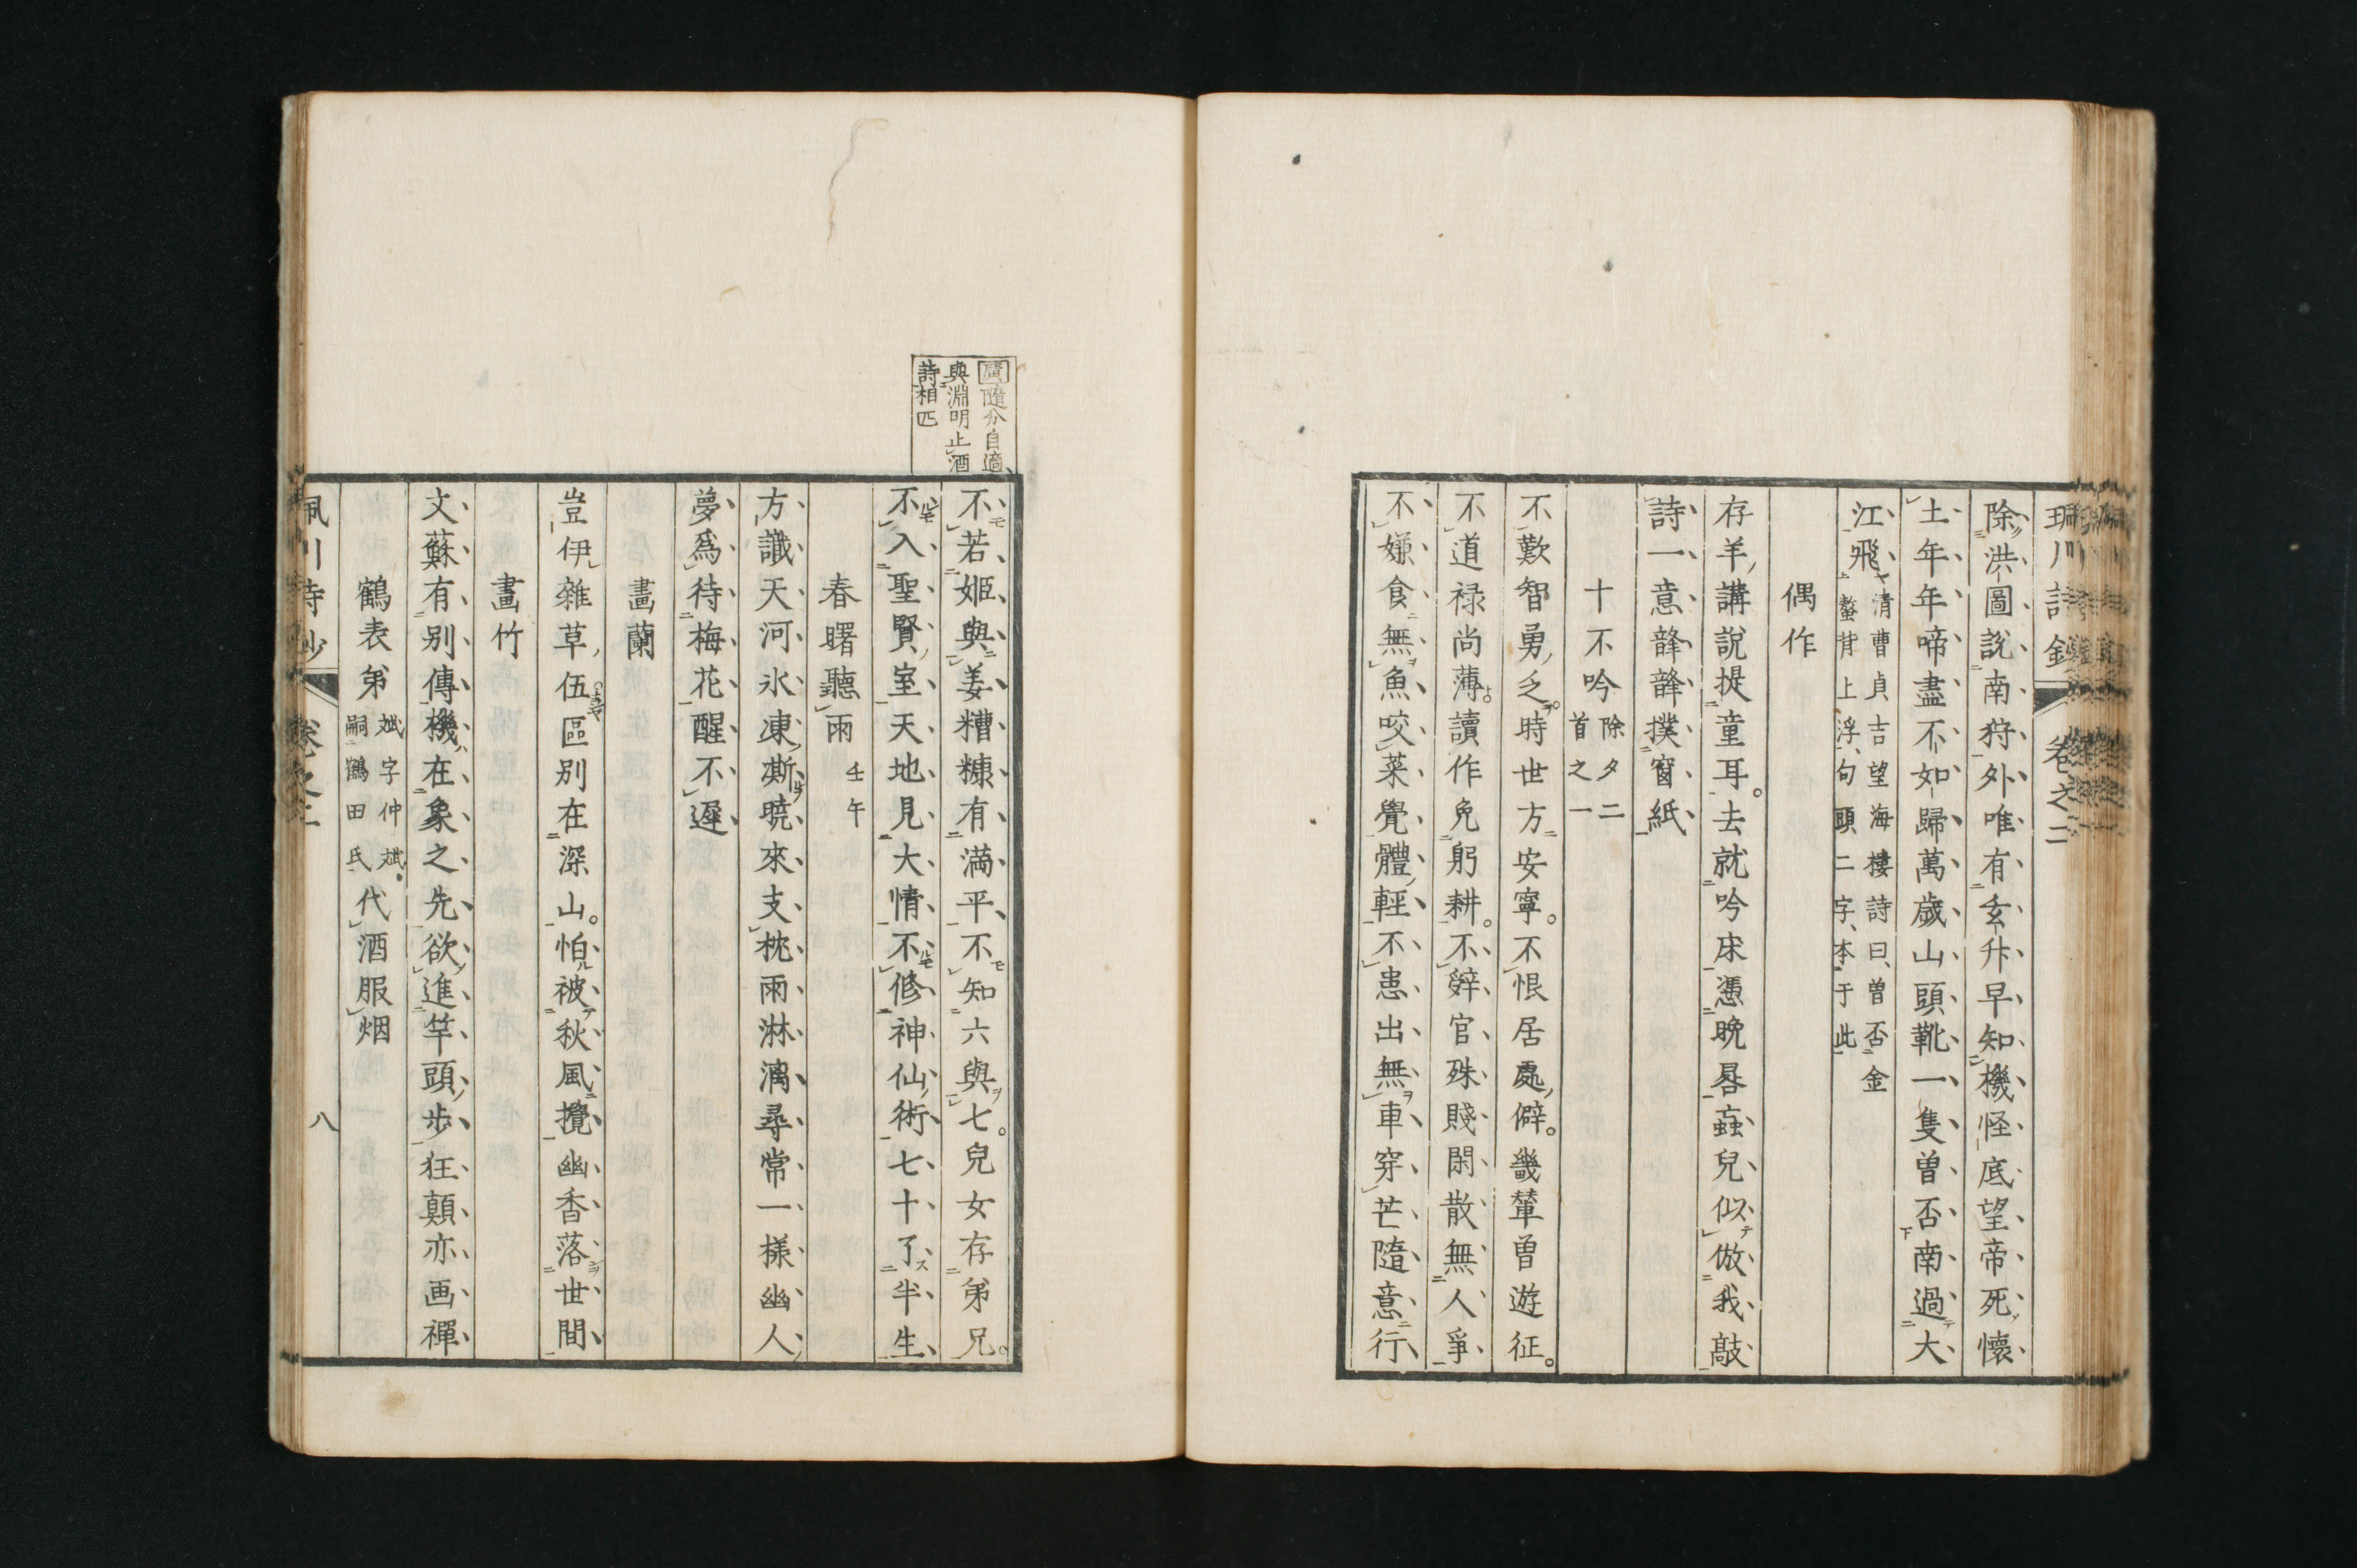 珮川詩鈔 卷之二
除洪圖說南狩外唯有玄升早知機怪底望帝死懷
土年年啼盡不如歸萬歲山頭靴一隻曽否南過大
江飛清曹貞吉望海樓詩曰、曽否金
鼇背上浮、句頭二字、本于此
偶作
存羊講說提童耳。去就吟床憑晩晷蝱兒似倣我敲
詩一意韸韸撲窗紙
十不吟除夕二
首之一
不歎智勇乏時世方安寧。不恨居處僻。畿輦曽遊征。
不道祿尚薄讀作免躬耕。不辭官殊賤閑散無人爭
不嫌食無魚咬菜覺體輕不患出無車穿芒隨意行
廣隨分自適
與淵明止酒
詩相匹
不若姫與姜糟糠有満平不知六與七。兒女存弟兄。
不入聖賢室天地見大情不修神仙術七十了半生
春曙聽雨壬午
方識天河氷凍澌暁來支枕雨淋漓尋常一樣幽人
夢爲待梅花醒不遲
畫蘭
豈伊雜草伍區別在深山。怕被秋風攪幽香落世間
畫竹
文蘇有別傳機在象之先欲進竿頭步狂顛亦画禪
鶴表弟斌字仲斌
嗣鶴田氏代酒服烟
珮川詩鈔 卷之二 八